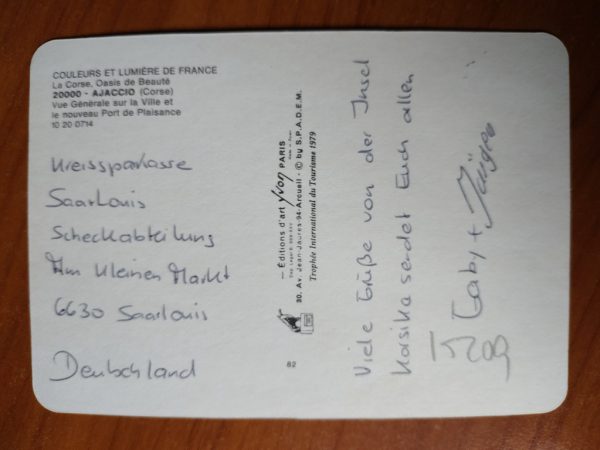 COULEURS ET LUMIÈRE DE FRANCE
La Corse, Oasis de Beauté
20000 - AJACCIO (Corse)
Vue Générale sur la Ville et
le nouveau Port de Plaisance
10 20 0714
Kreissparkasse
Saarlouis
Scheckabteilung
Am Kleinen Markt
6630 Saarlouis
Deutschland
— Éditions d'art yvon PARIS
30, Av. Jean-Jaurès-94-Arcueil - © by S.P.A.D.E.M.
Trophée International du Tourisme 1979
82
Viele Grüße von der Insel
Korsika sendet Euch allen
Gaby + Jürgen